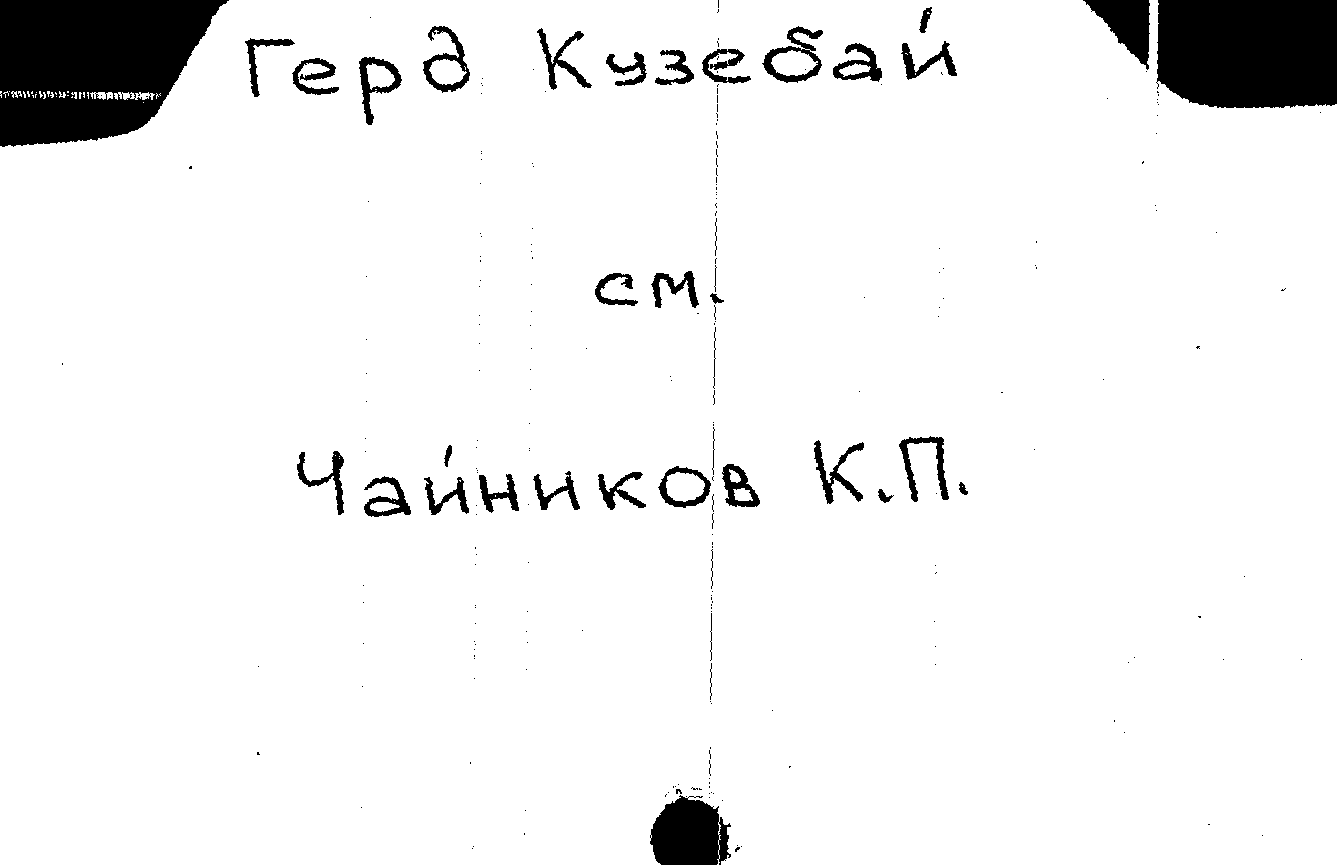 Герд Кузебай
см.
Чайников К.П.